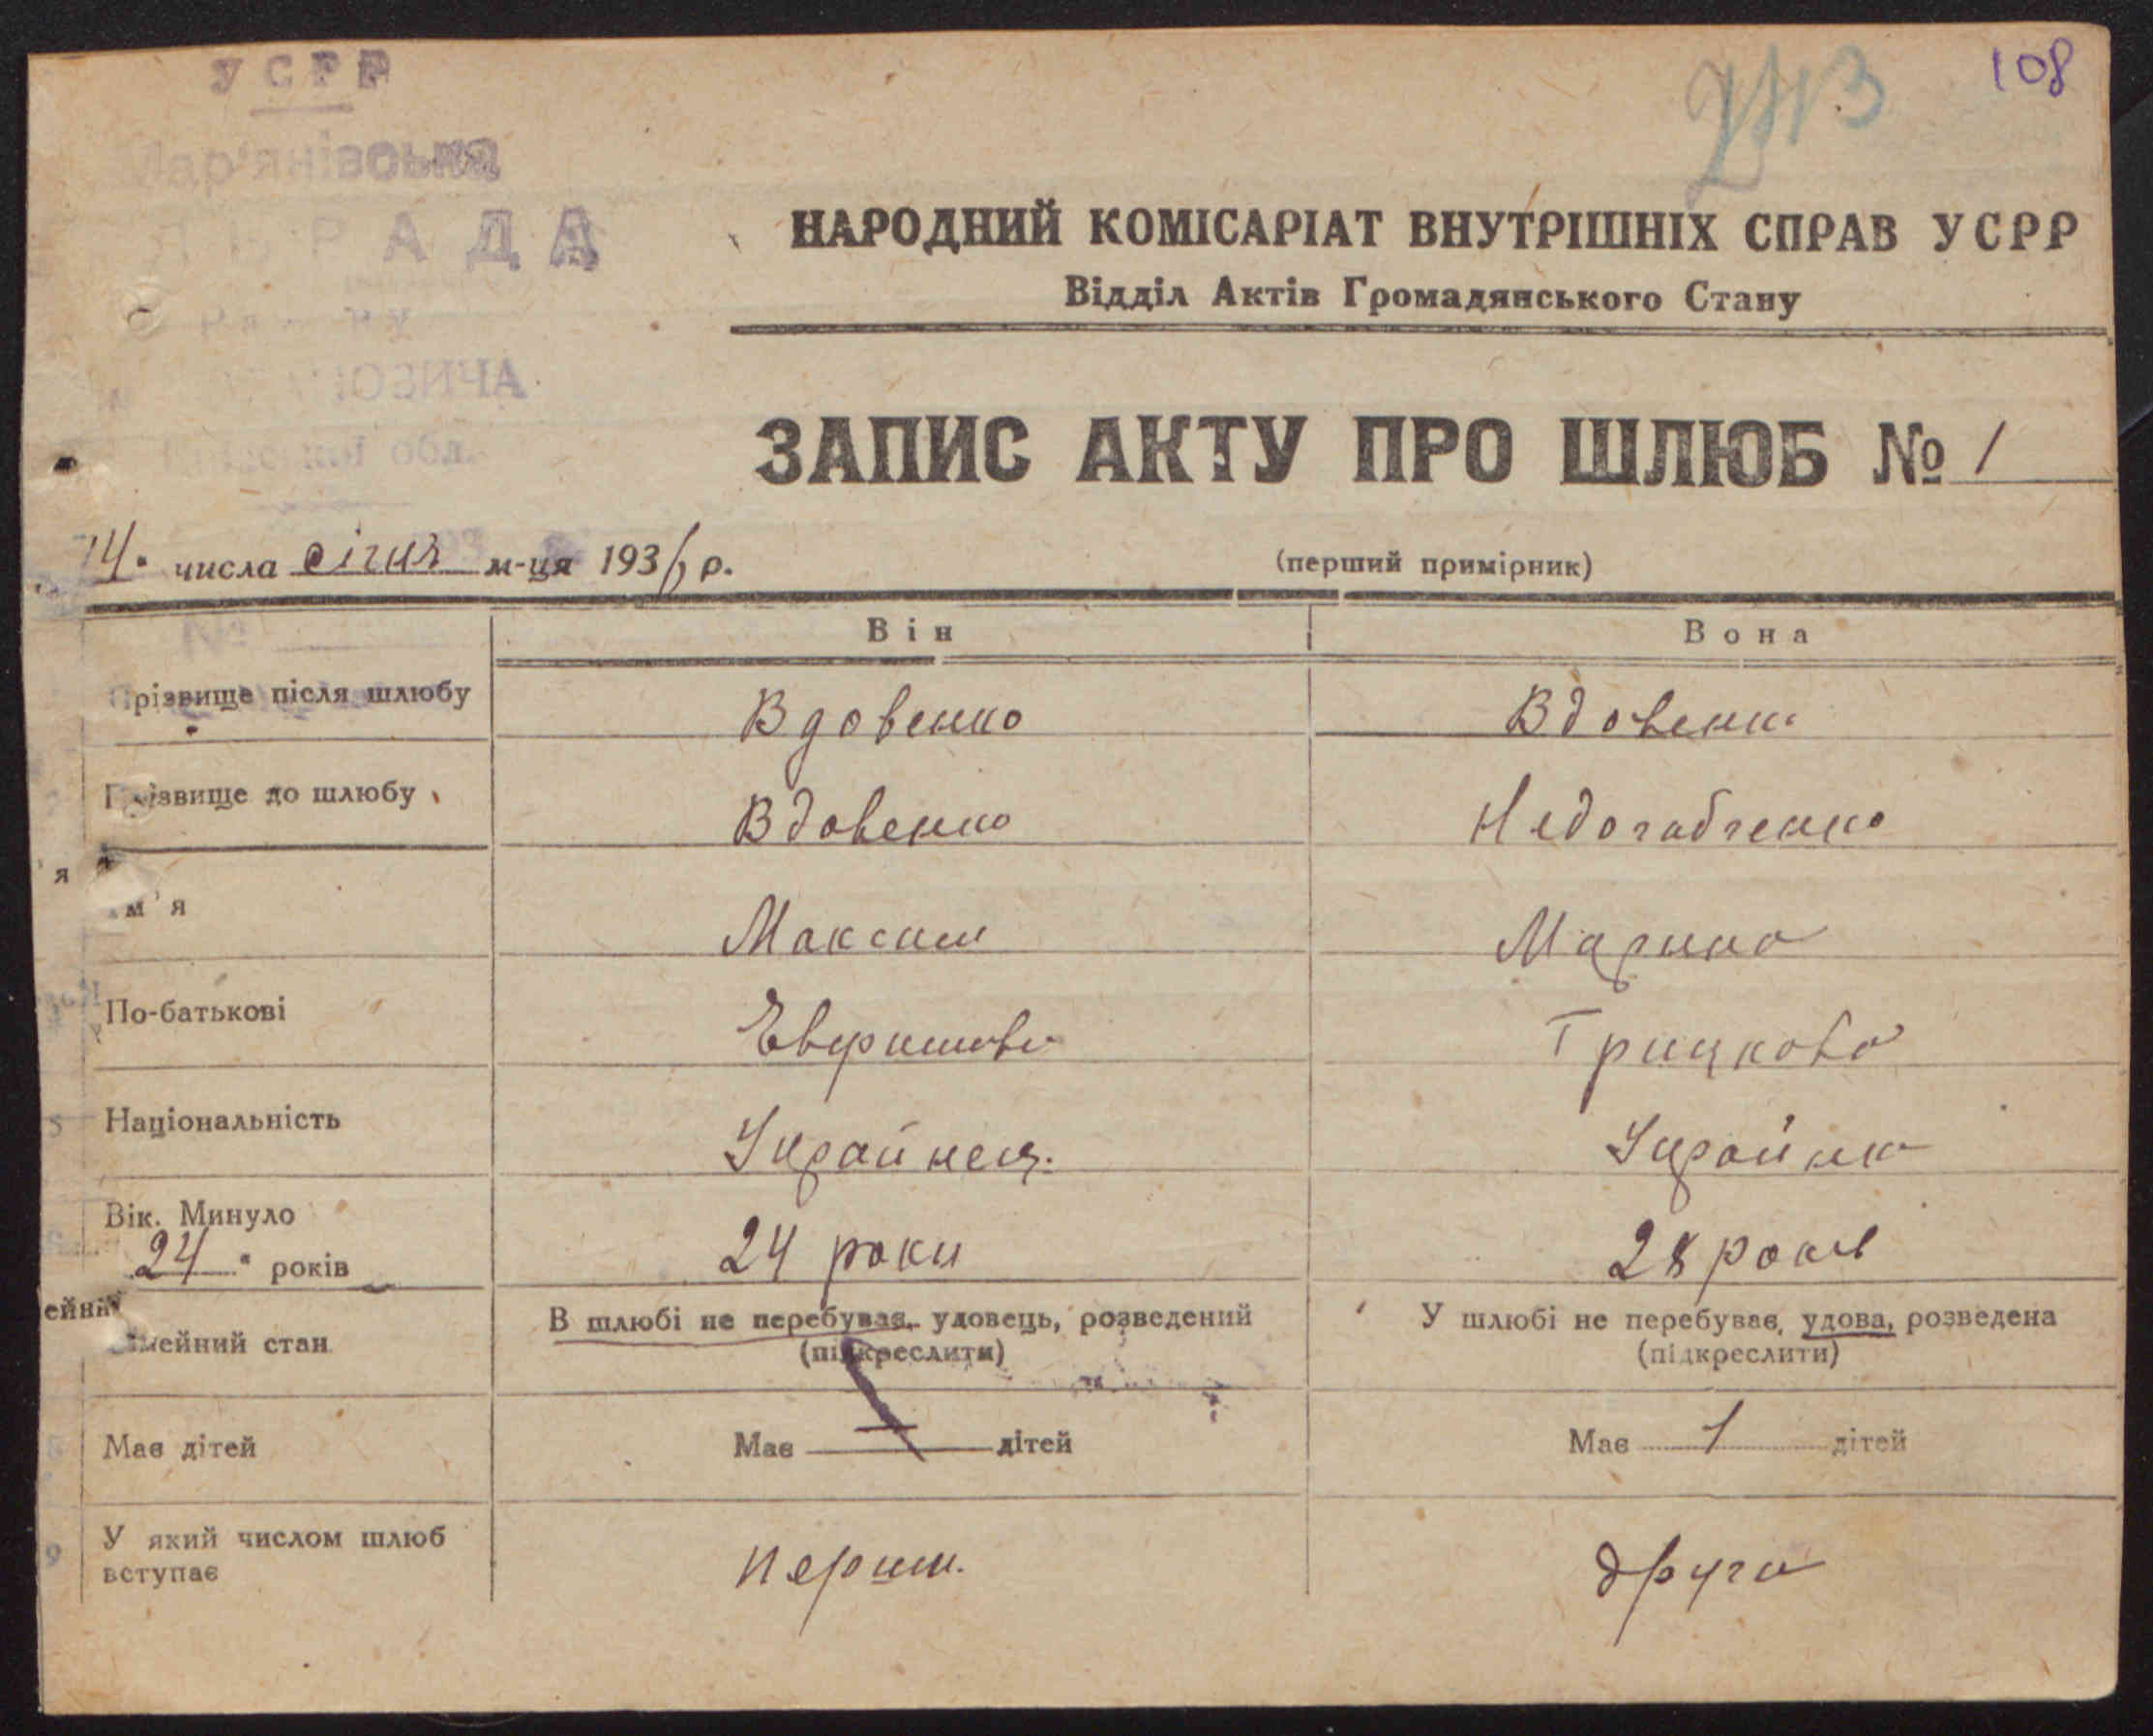 УСРР
108
Мар'янівська
РАДА
НАРОДНИЙ КОМІСАРІАТ ВНУТРІШНІХ СПРАВ УСРР
Відділ Актів Громадянського Стану
обл.
ЗАПИС АКТУ ПРО ШЛЮБ № 1
14. числа січня м-ця 1936 р.
(перший примірник)
Він Вона
Прізвище після шлюбу Вдовенко Вдовенко
Прізвище до шлюбу Вдовенко
м'я Максим Марина
По-батькові Грицкова
Національність Украйнец. Украйнка
Вік. Минуло
24 років 24 роки 28 років
Сімейний стан В шлюбі не перебуває, удовець, розведений У шлюбі не перебуває, удова, розведена
(підкреслити) (підкреслити)
Має дітей Має — дітей Має 1 дітей
У який числом шлюб
вступає перши. други